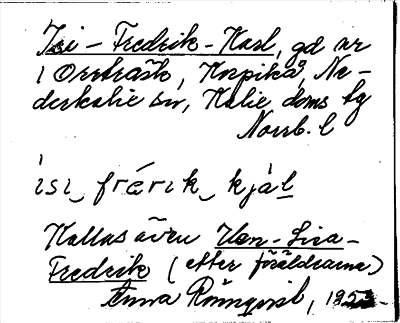 Isi-Fredrik-Karl, gd ar
i Orrträsk, Korpikå, Ne-
derkalix sn, Kalix doms bg
Norrb. l
isi‿frǽrik‿kjál
Kallas även Han-Lisa-
Fredrik (efter föräldrarna)
Anna Rönnqvist, 19